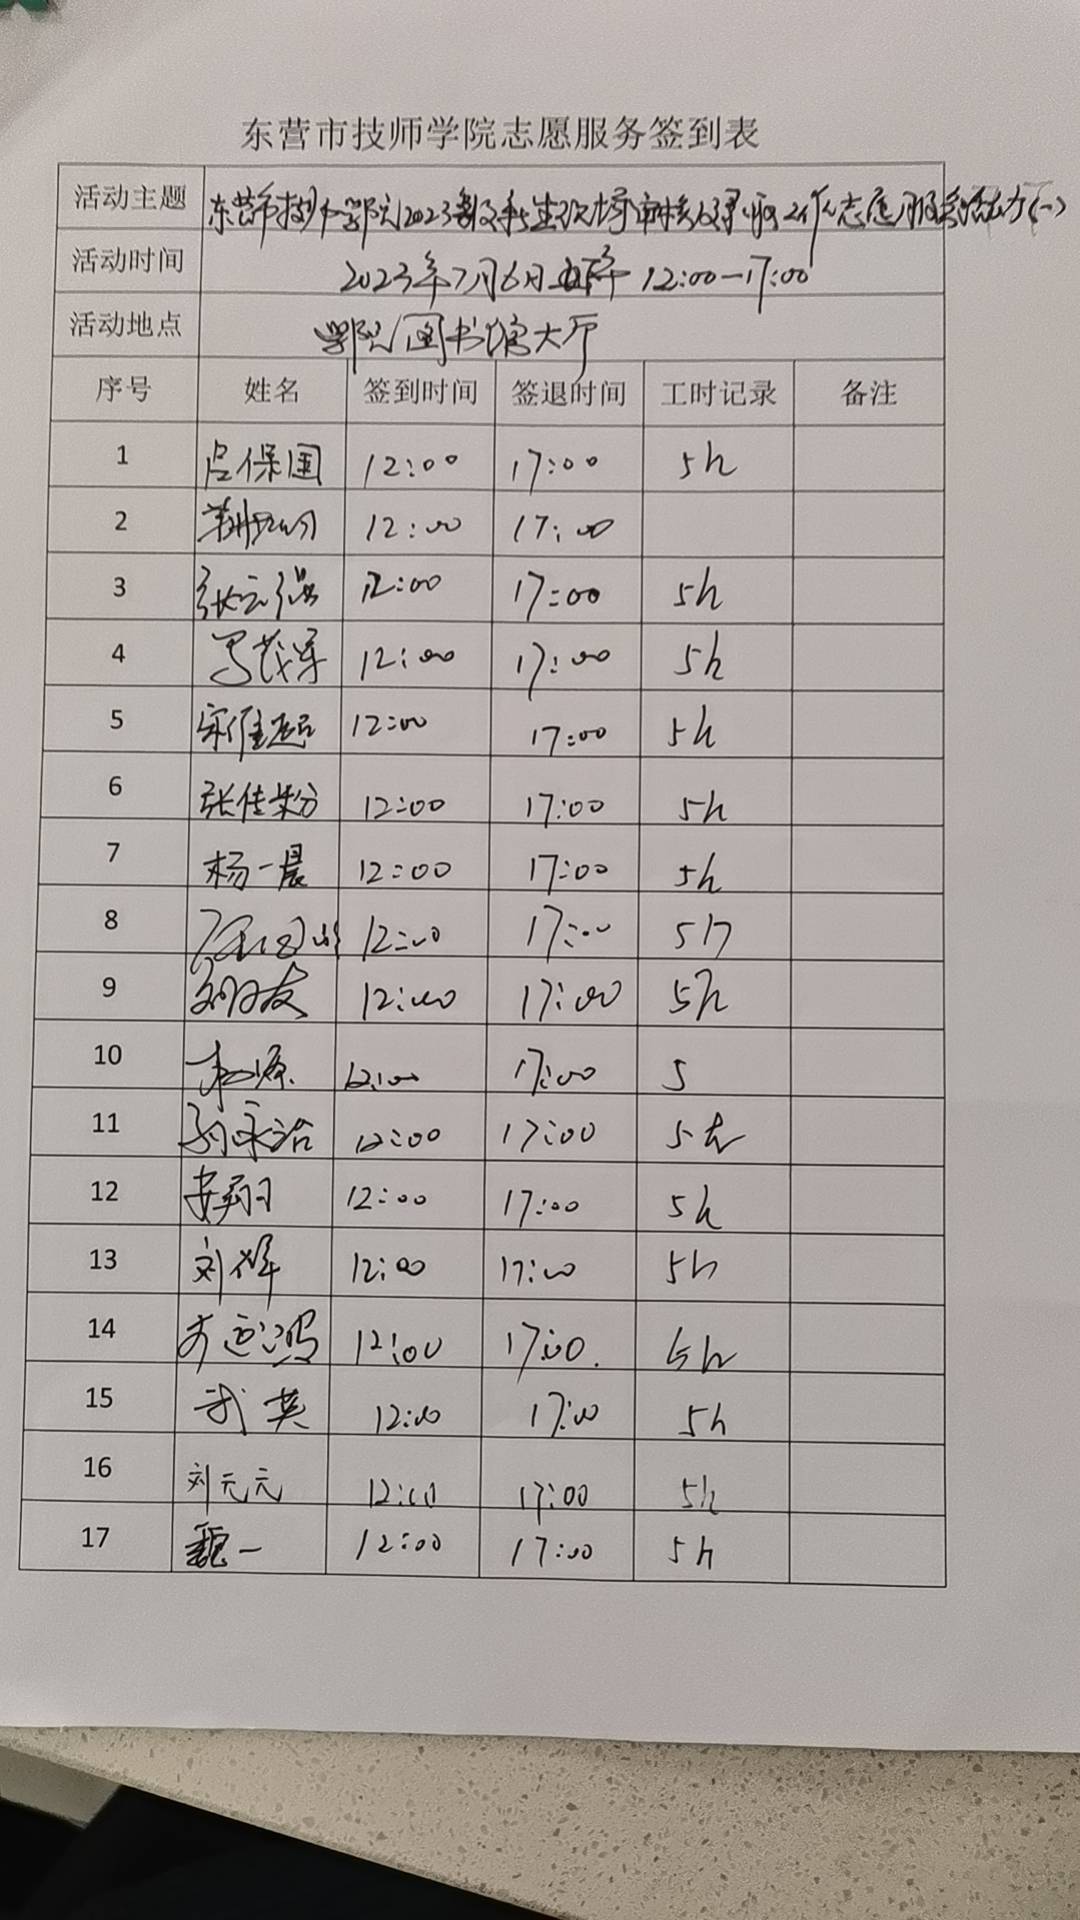 东营市技师学院志愿服务签到表
活动主题 东营市技师学院2023级新生现场审核及录取工作志愿服务活动(一)
活动时间 2023年7月6日 下午 12:00—17:00
活动地点 学院图书馆大厅
序号 姓名 签到时间 签退时间 工时记录 备注
1 吕保国 12:00 17:00 5h
2 12:00 17:00
3 张云强 12:00 17:00 5h
4 马茂军 12:00 17:00 5h
5 宋维超 12:00 17:00 5h
6 张佳粉 12:00 17:00 5h
7 杨一晨 12:00 17:00 5h
8 12:00 17:00 5h
9 12:00 17:00 5h
10 12:00 17:00 5
11 刘永治 12:00 17:00 5h
12 12:00 17:00 5h
13 刘伟 12:00 17:00 5h
14 12:00 17:00. 5h
15 武英 12:00 17:00 5h
16 刘元元 12:00 17:00 5h
17 魏一 12:00 17:00 5h